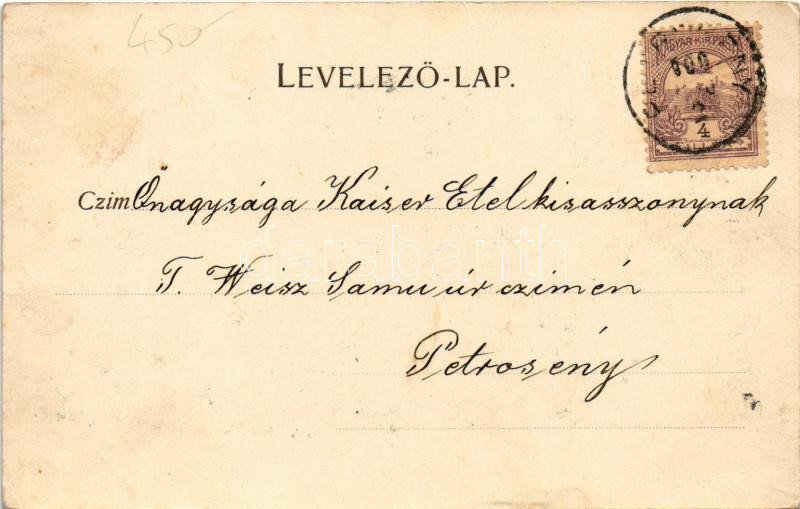 450
LEVELEZŐ-LAP.
MAGYAR·KIR·POSTA
900
4
Czim Önagysága Kaiser Etel kisasszonynak
darabanth
T. Weisz Samu úr czimén
Petrosény